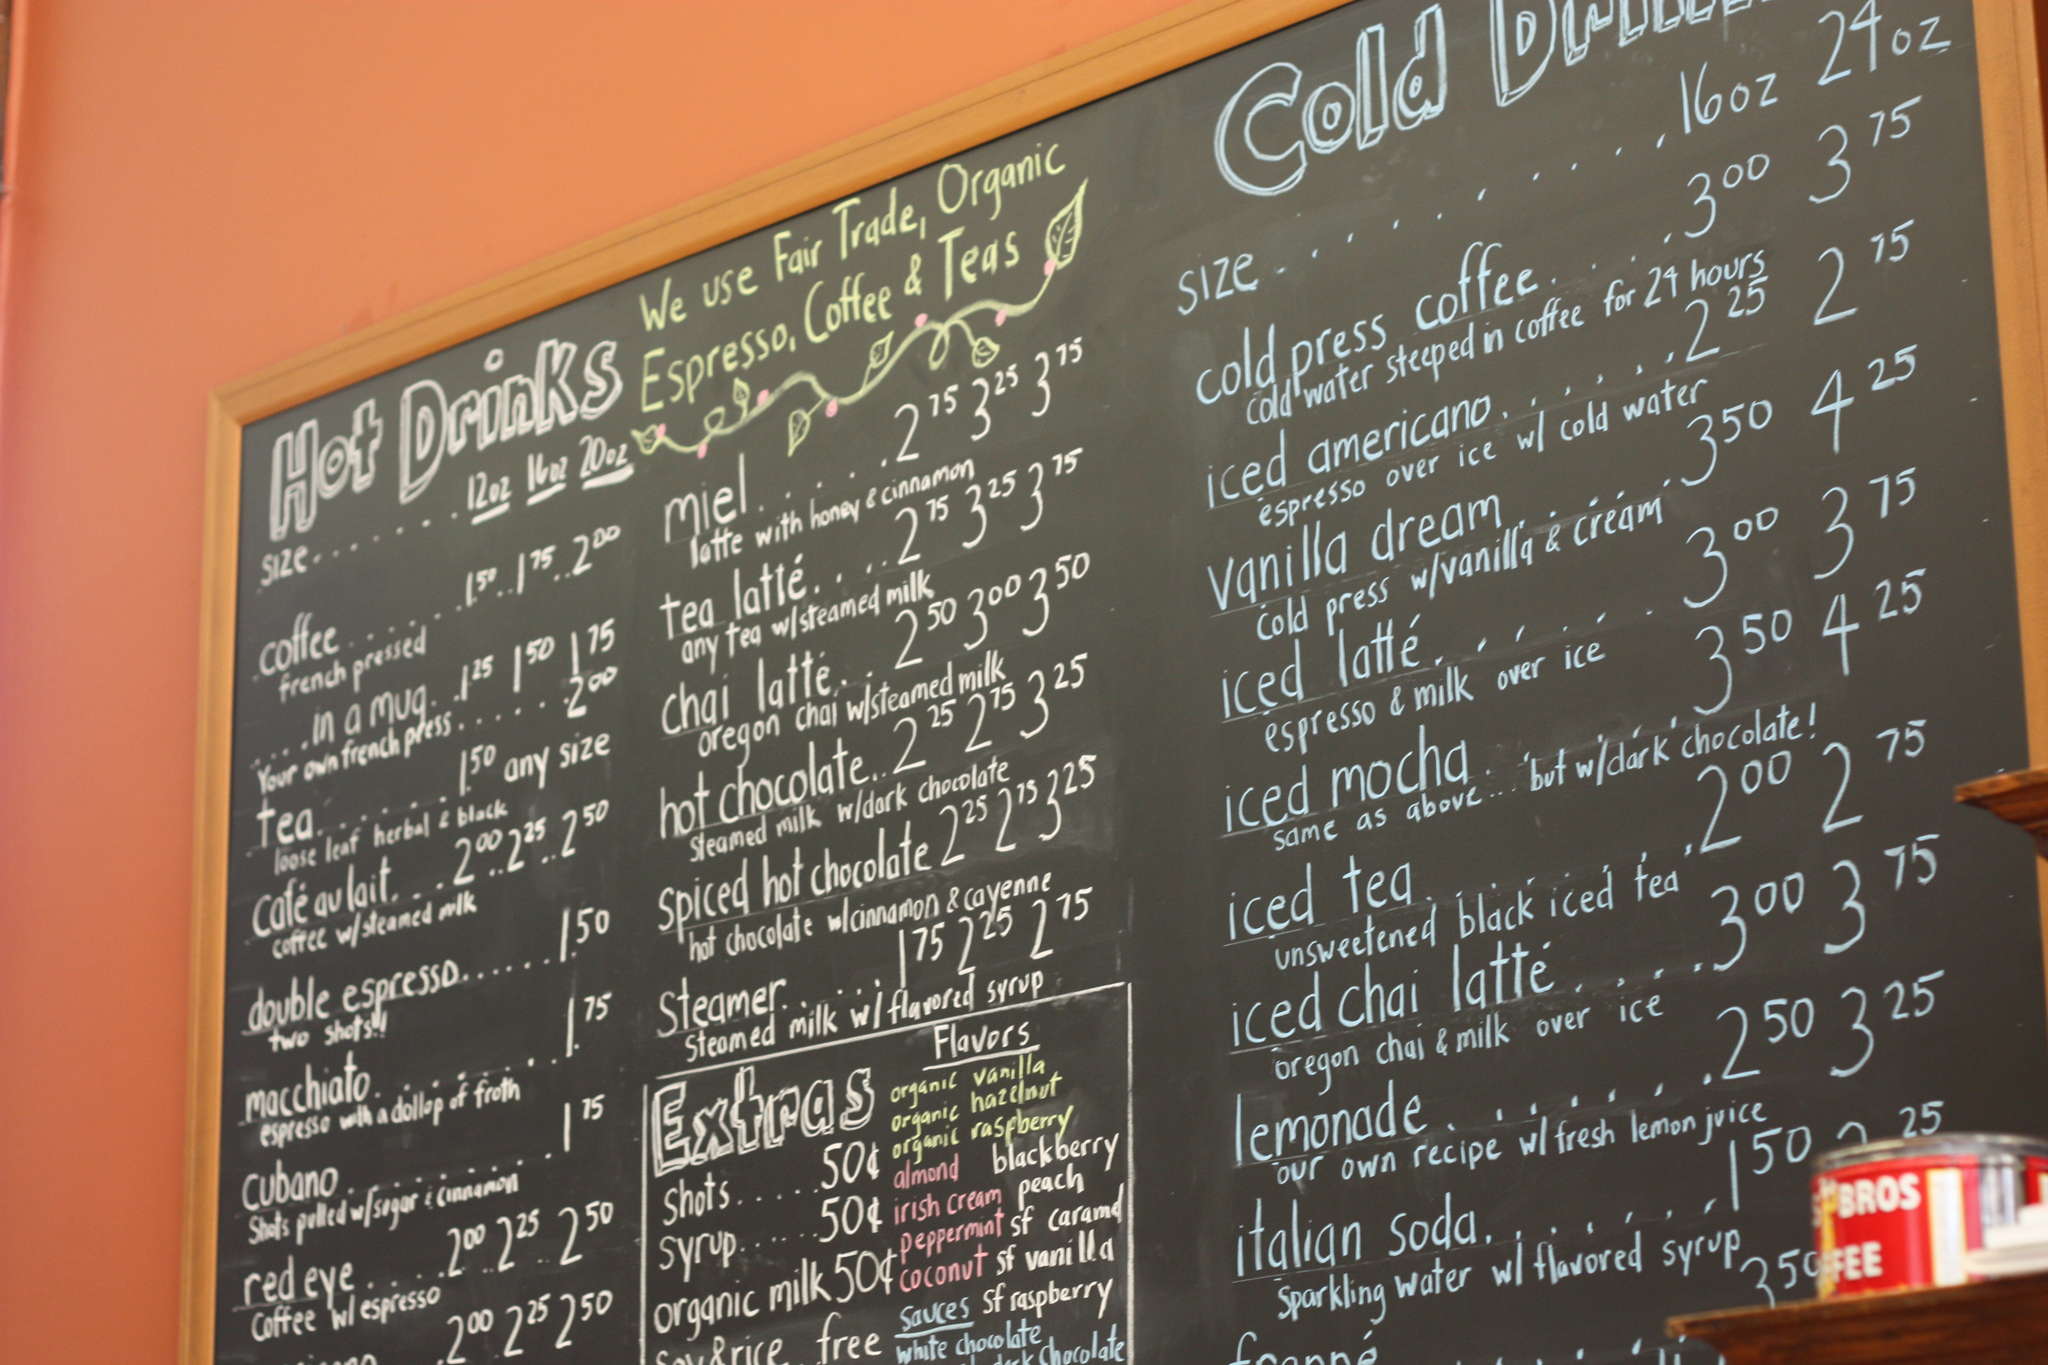 Hot Drinks
12oz 16oz 20oz
size
coffee 1.50 1.75 2.00
french pressed
in a mug 1.25 1.50 1.75
Your own french press 2.00
tea 1.50 any size
loose leaf herbal & black
Café au lait 2.00 2.25 2.50
coffee w/steamed milk
double espresso 1.50
two shots!!
macchiato 1.75
espresso with a dollop of froth
cubano 1.75
Shots pulled w/sugar & cinnamon
red eye 2.00 2.25 2.50
Coffee w/ espresso
2.00 2.25 2.50
We use Fair Trade, Organic
Espresso, Coffee & Teas
miel 2.75 3.25 3.75
latte with honey & cinnamon
tea latté 2.75 3.25 3.75
any tea w/steamed milk
chai latté 2.50 3.00 3.50
oregon chai w/steamed milk
hot chocolate 2.25 2.75 3.25
steamed milk w/dark chocolate
spiced hot chocolate 2.25 2.75 3.25
hot chocolate w/cinnamon & cayenne
Steamer 1.75 2.25 2.75
Steamed milk w/ flavored syrup
Extras
Shots 50¢
syrup 50¢
organic milk 50¢
soy & rice free
Flavors
organic vanilla
organic hazelnut
organic raspberry
almond blackberry
irish cream peach
peppermint sf caramel
coconut sf vanilla
sauces sf raspberry
white chocolate
dark chocolate
Cold Drin
size 16oz 24oz
cold press coffee 3.00 3.75
cold water steeped in coffee for 24 hours
iced americano 2.25 2.75
espresso over ice w/ cold water
vanilla dream 3.50 4.25
cold press w/vanilla & cream
iced latté 3.00 3.75
espresso & milk over ice
iced mocha 3.50 4.25
same as above... but w/dark chocolate!
iced tea 2.00 2.75
unsweetened black iced tea
iced chai latté 3.00 3.75
oregon chai & milk over ice
lemonade 2.50 3.25
our own recipe w/ fresh lemon juice
italian soda 1.50 2.25
Sparkling water w/ flavored syrup
3.50
BROS
FEE